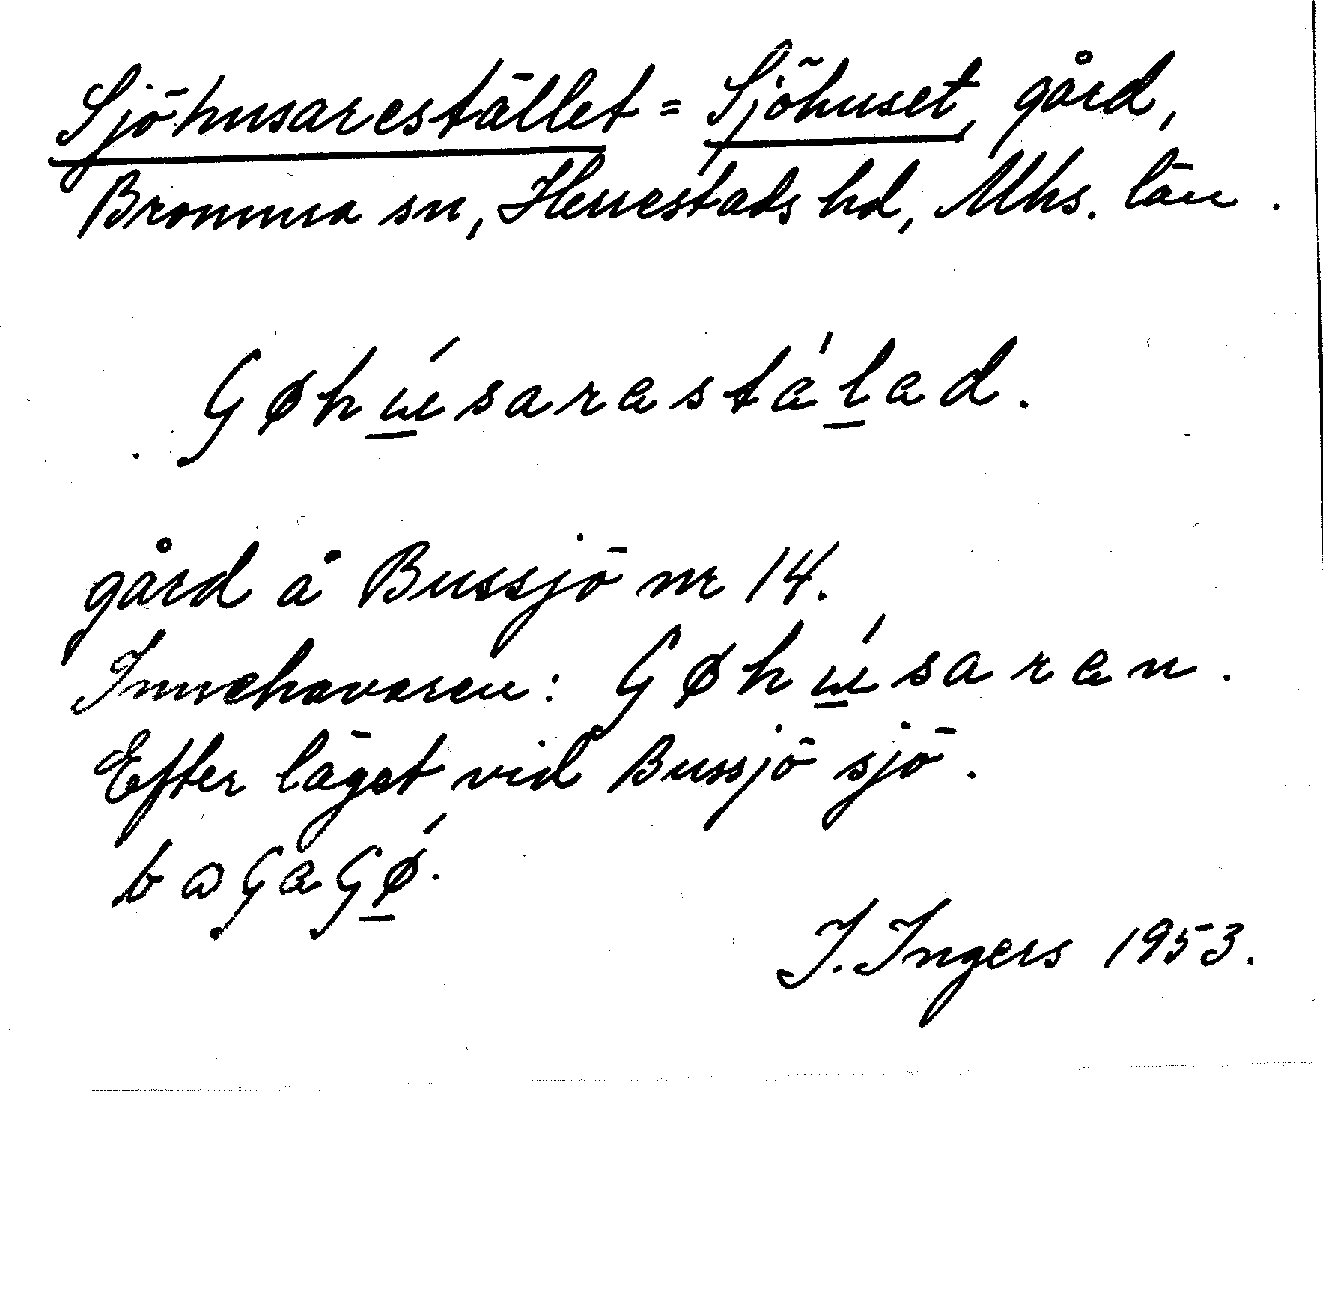 Sjöhusarestället = Sjöhuset, gård,
Bromma sn, Herrestads hd, Mhs. län.
Gøhúsarastálad.
gård å Bussjö nr 14.
Innehavaren: Gøhúsaran.
Efter läget vid Bussjö sjö.
baGaGǿ.
I. Ingers 1953.